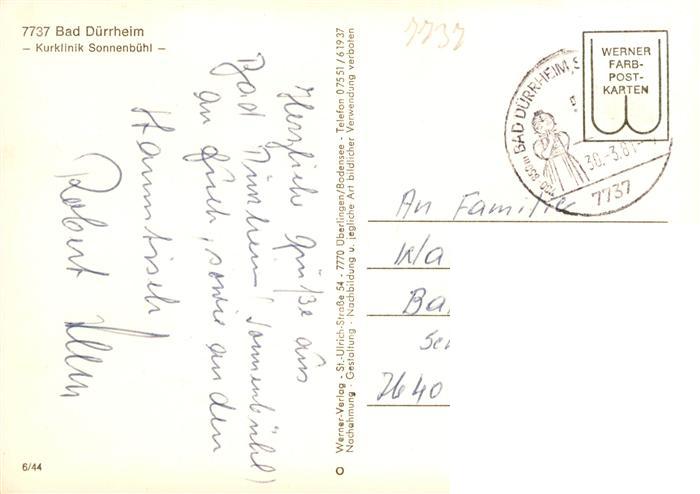 7737 Bad Dürrheim
– Kurklinik Sonnenbühl –
Herzliche Grüße aus
Bad Dürrheim (Sonnenbühl)
an Euch, sowie an den
Stammtisch
Robert
6/44
Werner-Verlag · St.-Ulrich-Straße 54 - 7770 Überlingen/Bodensee - Telefon 07551/61937
Nachahmung - Gestaltung - Nachbildung u. jegliche Art bildlicher Verwendung verboten
7737
WERNER
FARB-
POST-
KARTEN
BAD DÜRRHEIM
30.-3.81
7737
An Familie
Ba
7640